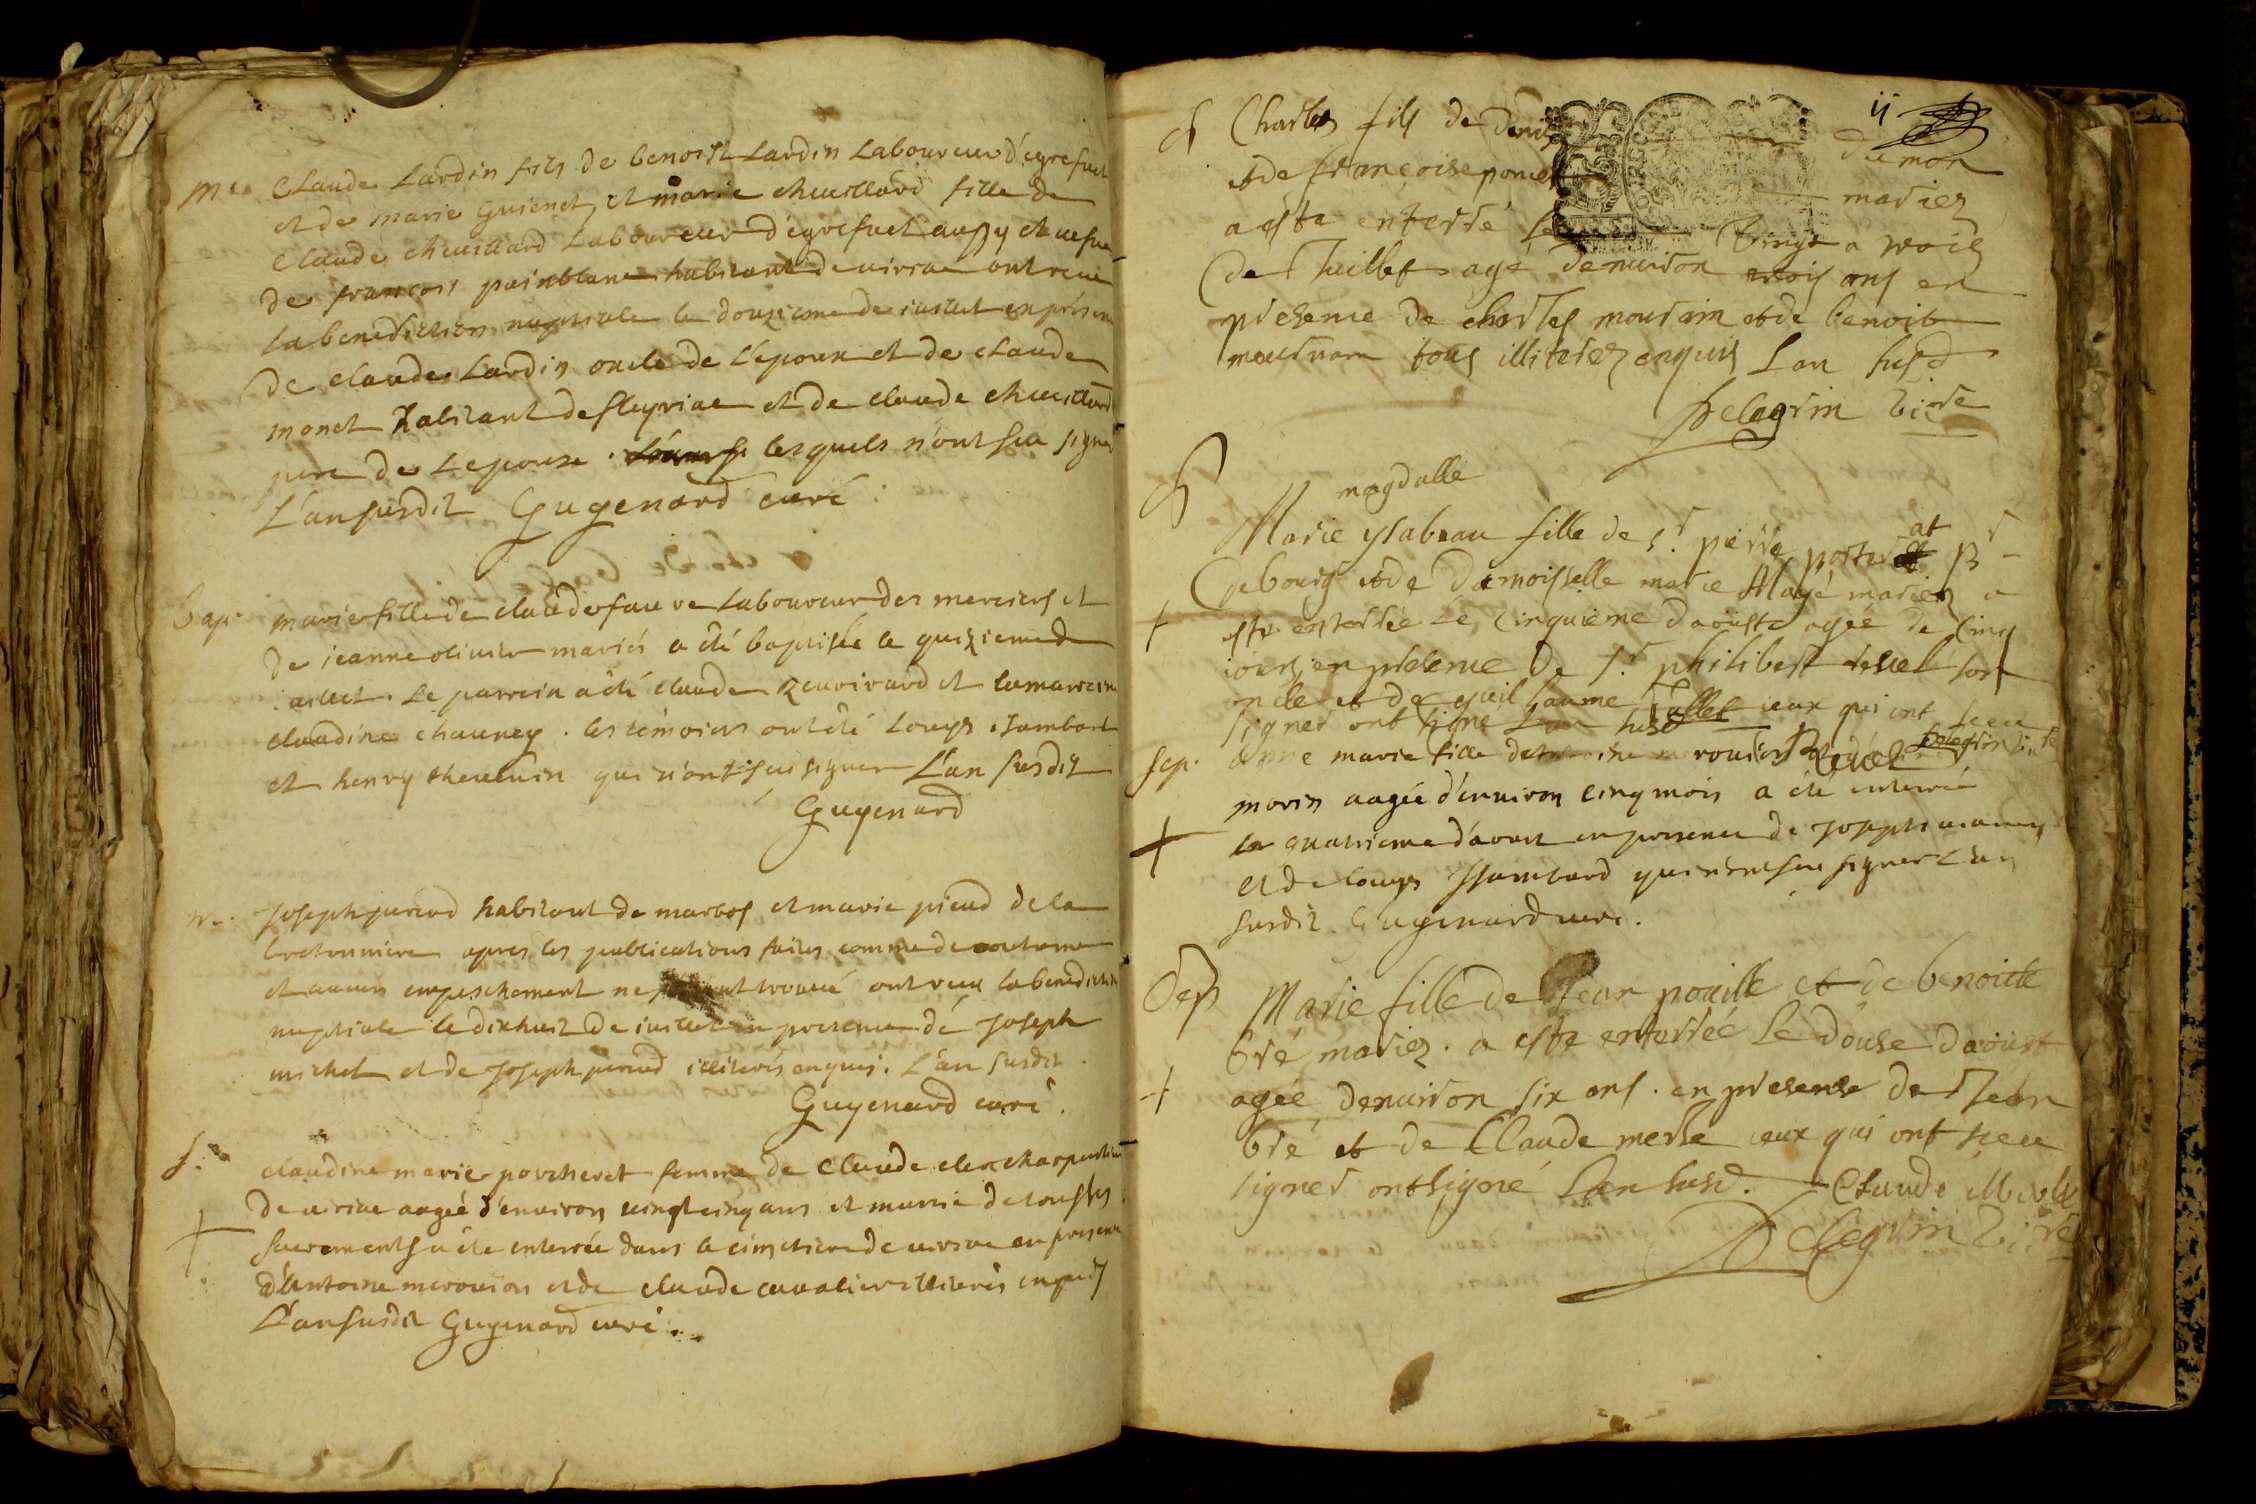 Mre Claude Lardin fils de benoist Lardin Laboureur d'egrefuel
et de marie Guienet et marie cheuillard fille de
Claude cheuillard Laboureur d'egrefuel aussy et uefue
de francois painblanc habitant de uiriac ont receu
la benediction nuptiale le douzieme de iuillet en présence
de claude Lardin oncle de L'epoux et de claude
monet habitant de fleyriac et de claude cheuillard
pere de Lepouse lesquels n'ont sceu signer
L'an susdit Guyenard curé
bap. marie fille de claude faure Laboureur des merciers et
de ieanne oliuier mariés a été baptisée le quizieme de
iuillet. Le parrein a été claude et la marreine
claudine chauney. les témoins ont été Louys isambard
et henry theuenin qui n'ont sceu signer L'an susdit
Guyenard
m. Joseph perrud habitant de marbos et marie picud de la
bretonniere apres les publications faites comme de coutume
et aucun empeschement ne trouué ont receu la benediction
nuptiale le dixhuit de iuillet en presence de Joseph
michel et de Joseph perrud illiterés enquis. L'an susdit.
Guyenard curé.
S. claudine marie porcheret femme de Claude clerc charpentier
de uiriac aagée d'enuiron uingt cinq ans et munie de tous ses
sacrements a été enterrée dans le cimetiere de uiriac en presence
d'Antoine merouion et de claude caualier illiterés enquis
L'an susdit Guyenard curé.
ii
S Charles fils de Denis dumon
et de françoise poncet mariez
a esté enterré le Vingt a trois
de Juillet agé denuiron trois ans en
presence de charles mourain et de benoit
tous illiterez enquis Lan susd
Pelegrin Vicre
S magdalle
Marie ysabeau fille de sr. pierre porterat Br
gebourg et de damoisselle marie Mayé mariez a
esté enterrée Le cinquieme daouste agée de Cinq
iours en presence De sr philibert teuet son
oncle et de guilliaume Tullet ceux qui ont sceu
signer ont signé Lan susd Pelegrin Vicre
Sep. Anne marie fille de merouion
morin aagée d'enuiron cinq mois a été enterrée
le quatrieme d'aout en presence de Joseph
et de Louys Isambard qui n'ont sceu signer L'an
susdit. Guyenard curé.
Sep Marie fille de Jean pouille et de benoitte
bré mariez. a esté enterrée Le douse Daoust
agée denuiron six ans. en presence de Jean
bré et de Claude merle ceux qui ont sceu
signer ont signé Lan susd. Claude Merle
Pelegrin Vicre